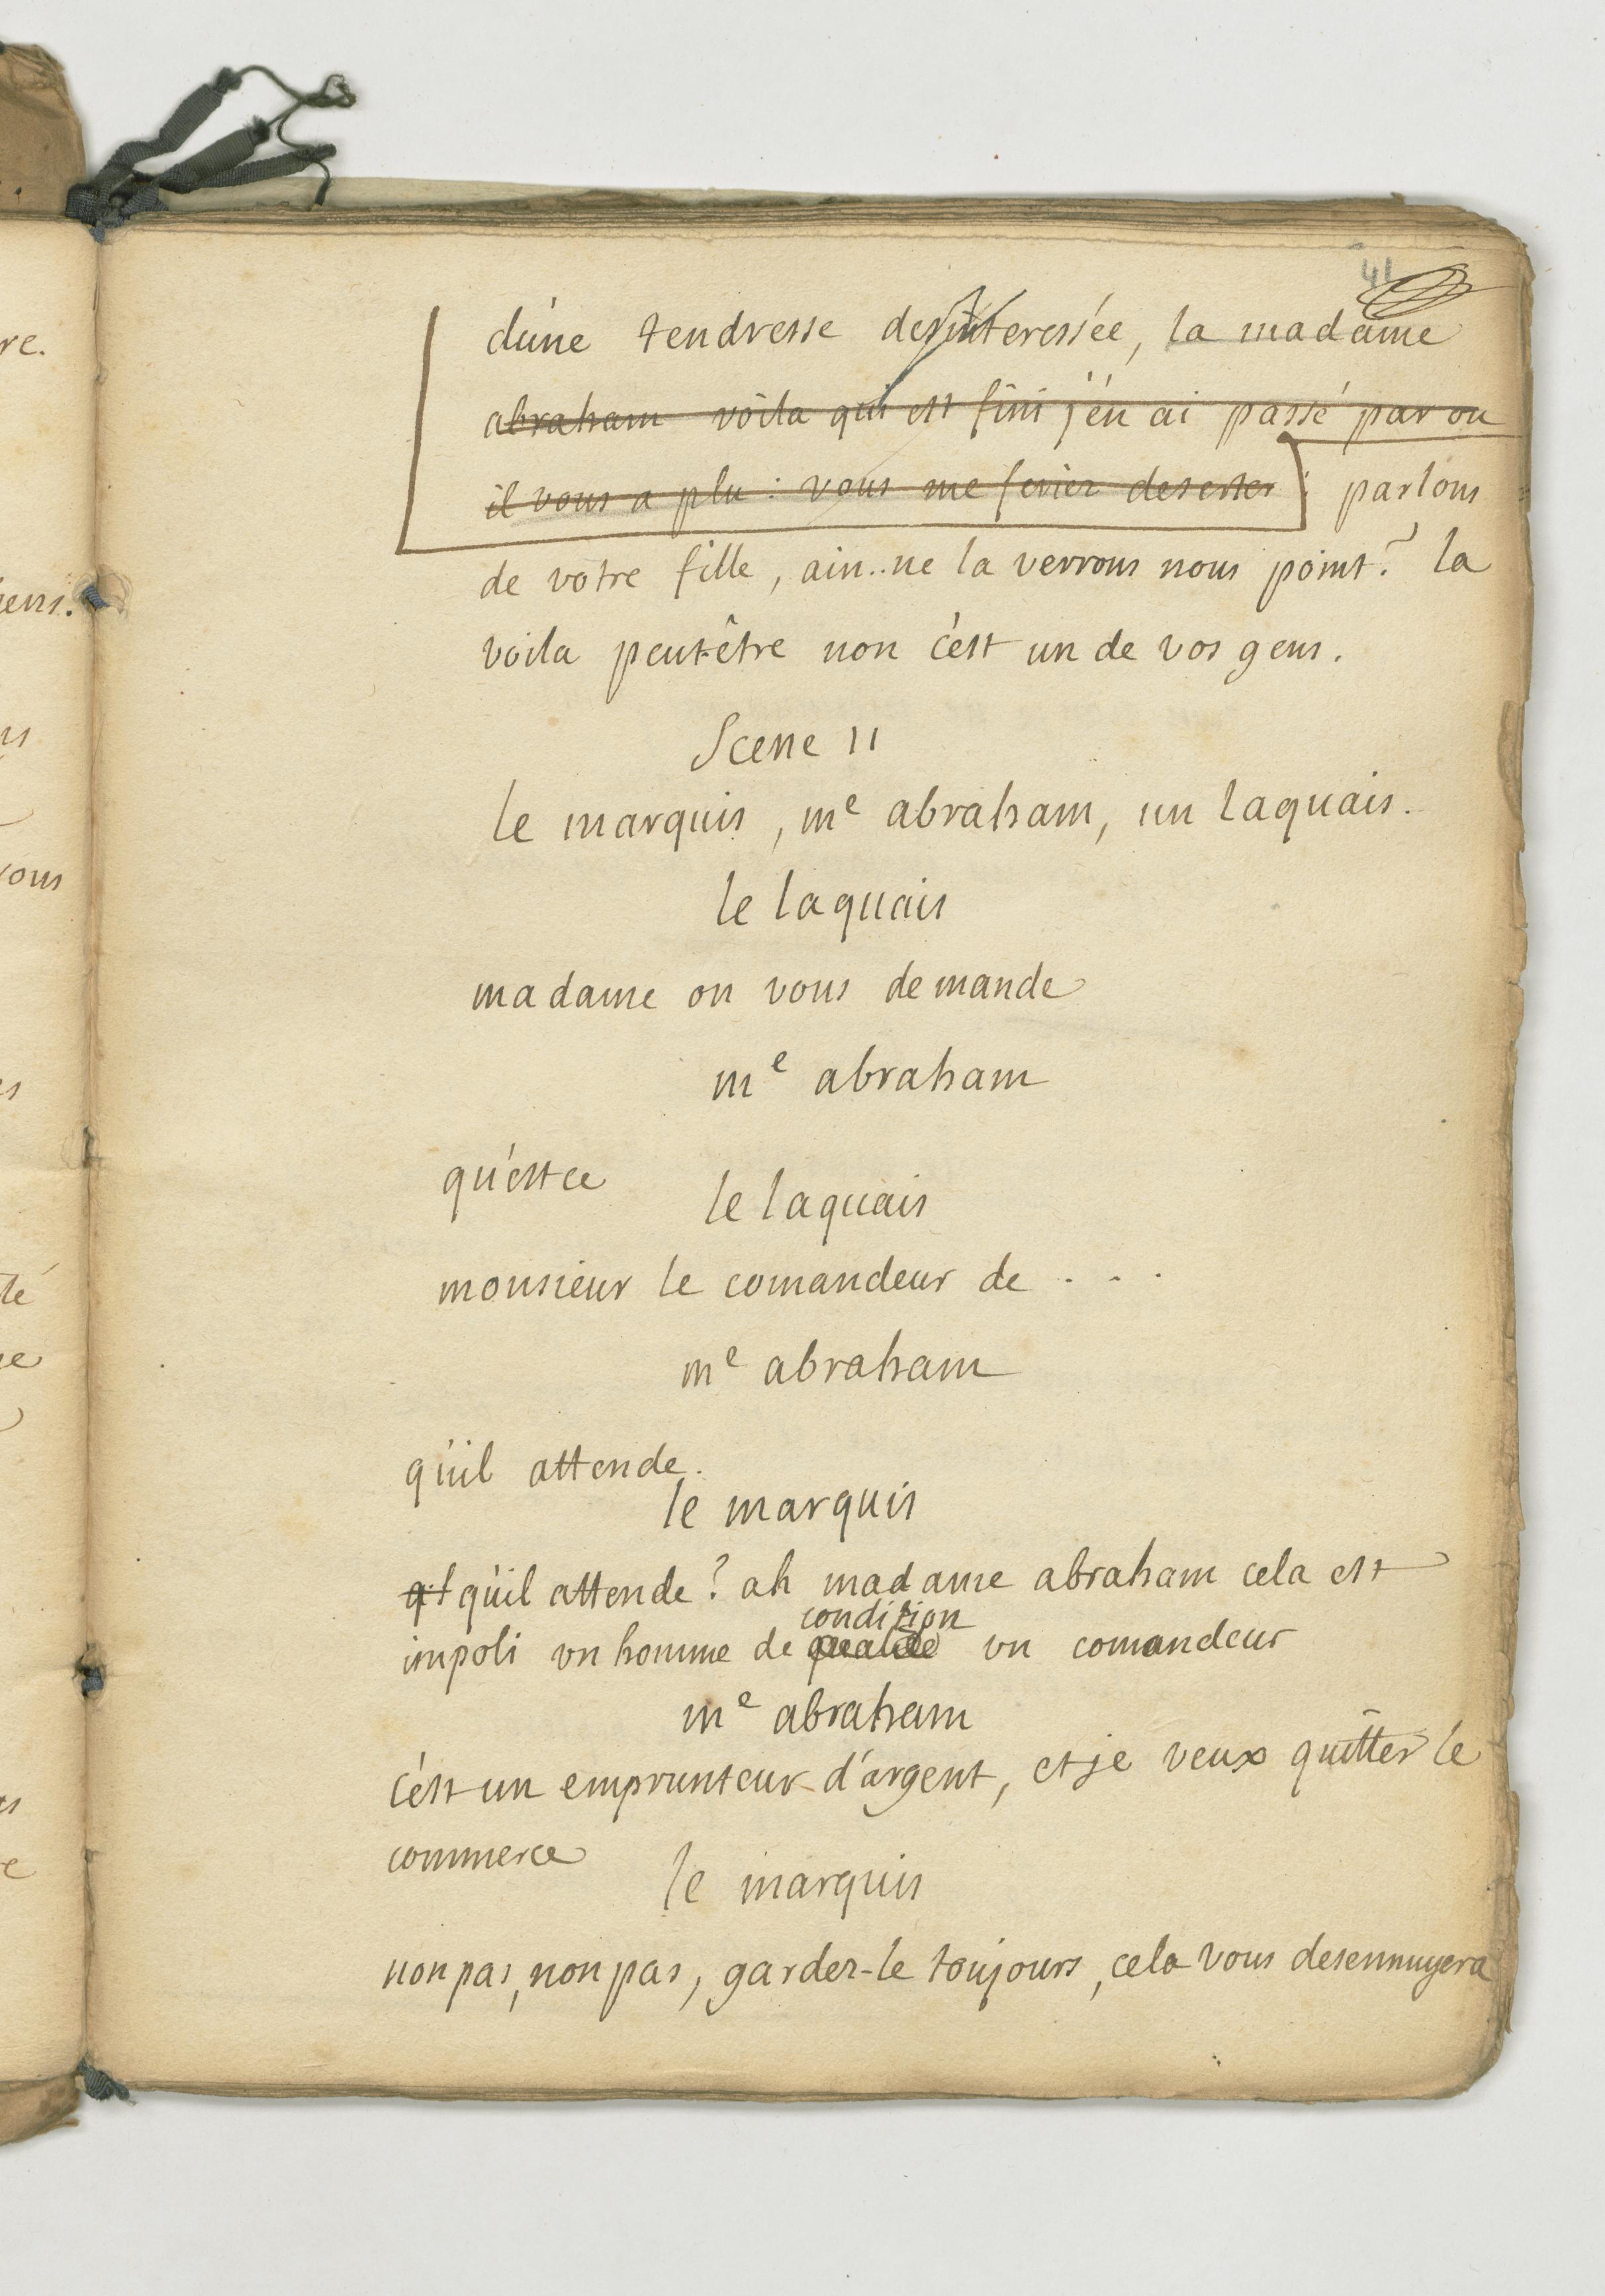 41
d'une tendresse desinteressée, la madame
abraham voila qui est fini j'en ai passé par ou
il vous a plu : vous me feriez deserter : parlons
de votre fille, ain..ne la verrons nous point? la
voila peut-être non c'est un de vos gens.
Scene 11
le marquis, me abraham, un laquais.
le laquais
madame on vous demande
me abraham
qu'est ce
le laquais
monsieur le comandeur de . . .
me abraham
qu'il attende.
le marquis
qu'il attende? ah madame abraham cela est
condition
impoli un homme de qualité un comandeur
me abraham
c'est un emprunteur d'argent, et je veux quitter le
commerce
le marquis
non pas, non pas, gardez-le toujours, cela vous desennuyera